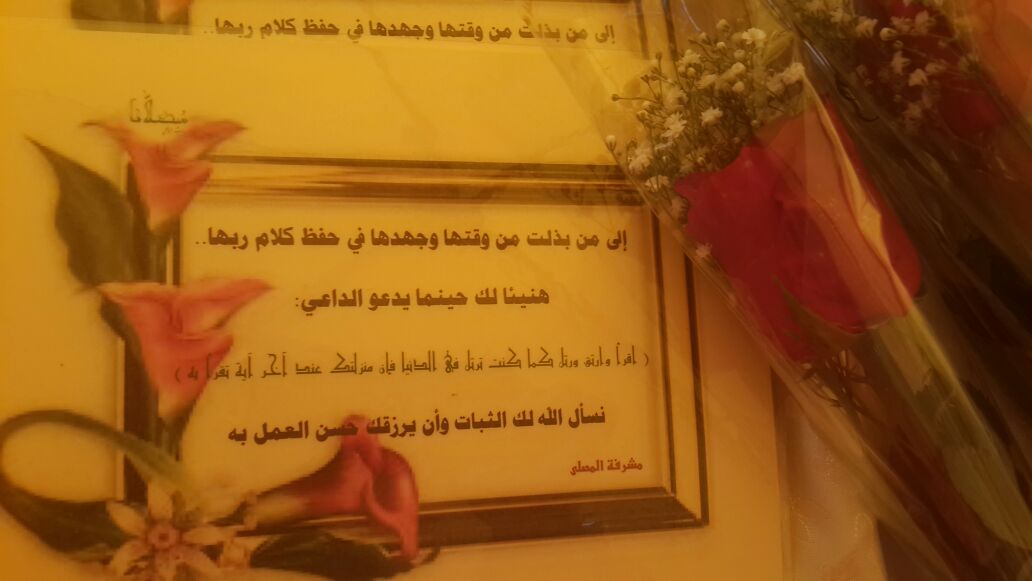 إلى من بذلت من وقتها وجهدها في حفظ كلام ربها..
مُصلّانا
إلى من بذلت من وقتها وجهدها في حفظ كلام ربها..
هنيئا لك حينما يدعو الداعي:
( اقرأ وارتق ورتل كما كنت ترتل في الدنيا فإن منزلتك عند آخر آية تقرأ به )
نسأل الله لك الثبات وأن يرزقك حسن العمل به
مشرفة المصلى